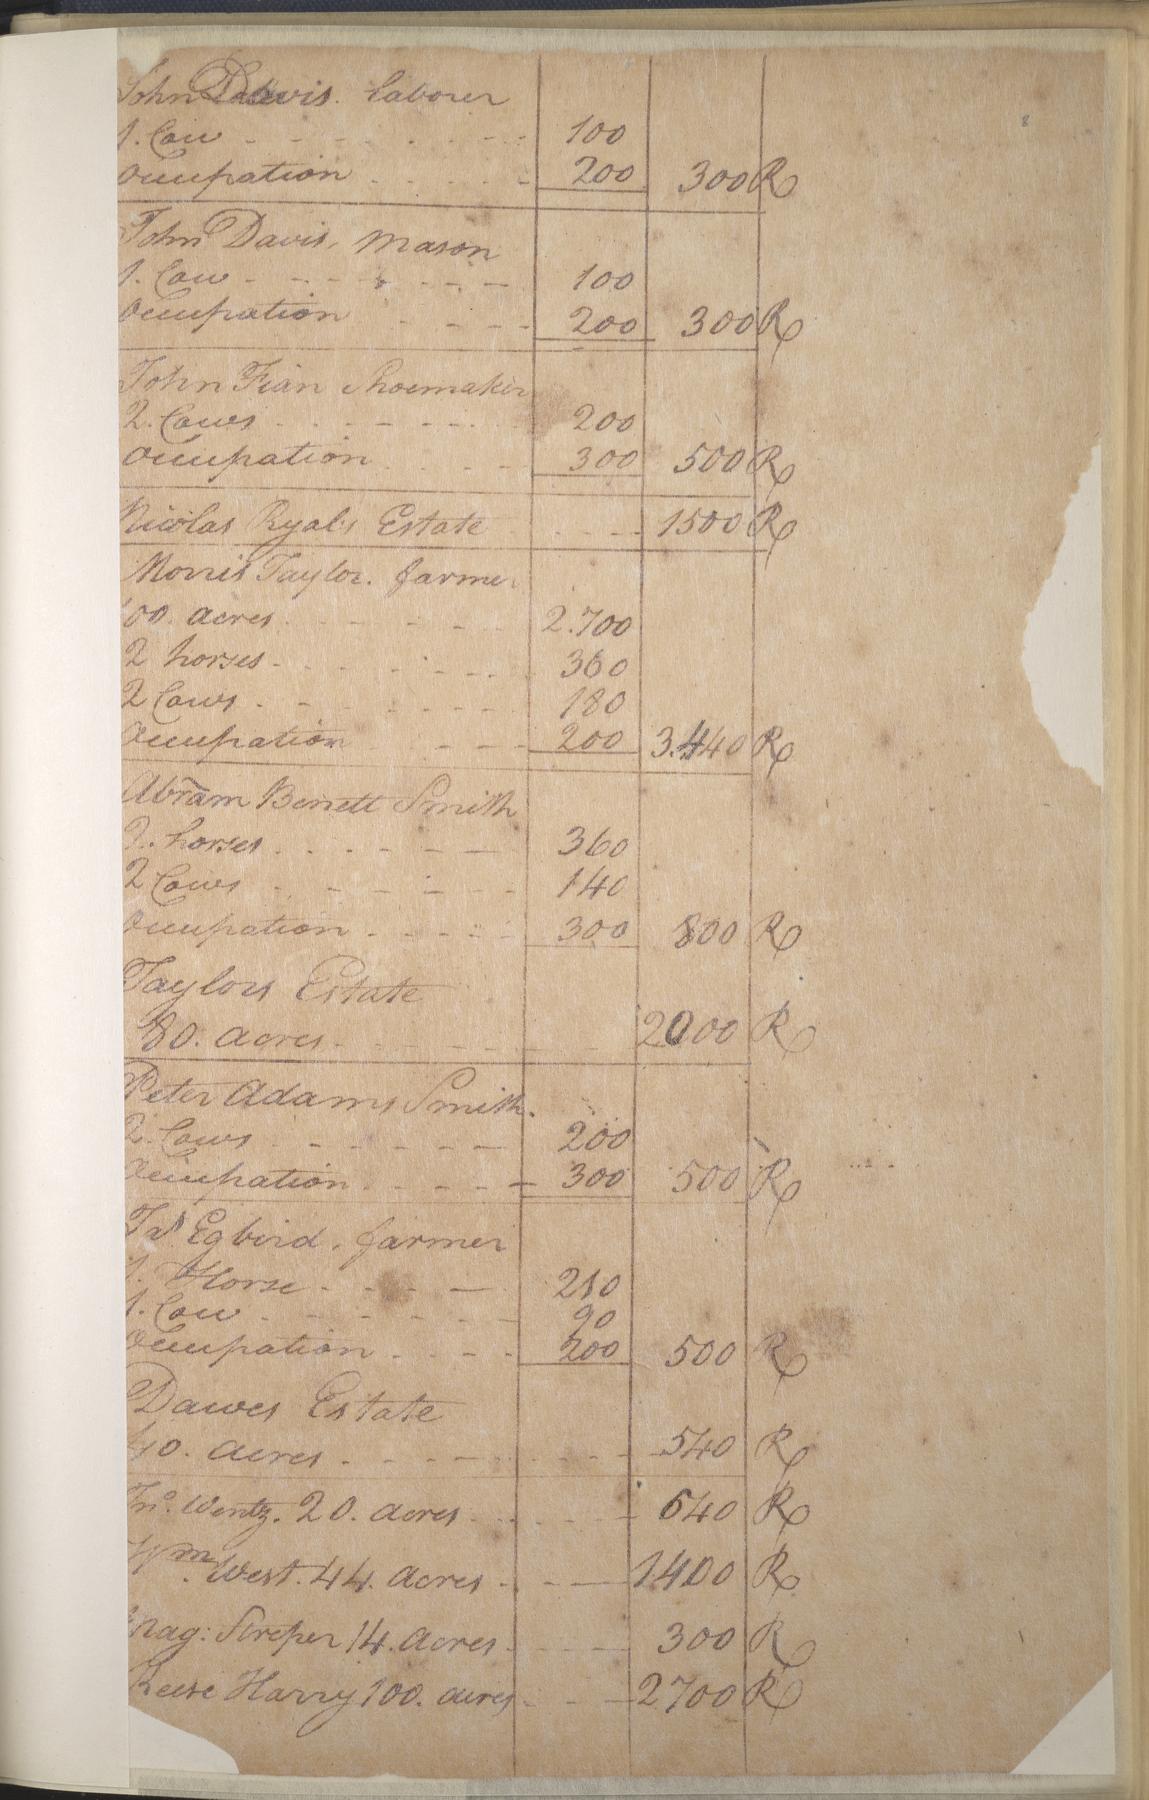 John Davis. laborer
1. Cow - - - - - - - 100
Occupation - - - - - 200 300 R
John Davis, Mason
1. Cow - - - - - - - 100
Occupation - - - - 200 300 R
John Fian Shoemaker
2. Cows - - - - - - 200
Occupation - - - 300 500 R
Nicolas Ryals Estate - - - 1500 R
Morris Taylor. farmer
100. acres - - - - - 2.700
2 horses - - - - - - 360
2 Cows - - - - - - - 180
Occupation - - - - 200 3.440 R
Abram Benett Smith
2. horses - - - - - - 360
2 Cows - - - - - - 140
Occupation - - - - - 300 800 R
Taylors Estate
80. acres - - - - - - 2000 R
Peter Adams Smith.
2. Cows - - - - - - 200
Occupation - - - - - 300 500 R
Egbird. farmer
1. Horse - - - - - 210
1. Cow - - - - - - 90
Occupation - - - - 200 500 R
Dawes Estate
40. acres - - - - - - - 540 R
Jno. Wentz. 20. acres - - - - - 640 R
Wm. West. 44. acres - - - 1400 R
Mag: Streper 14. acres - - - 300 R
Reese Harry 100. acres - - - 2700 R
8